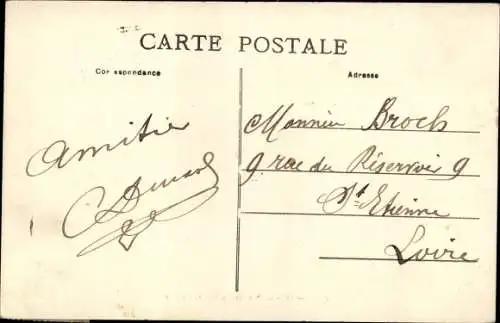 CARTE POSTALE
Correspondance
Adresse
Amitié
Monsieur Broch
9 rue du Réservoir 9
St Etienne
Loire